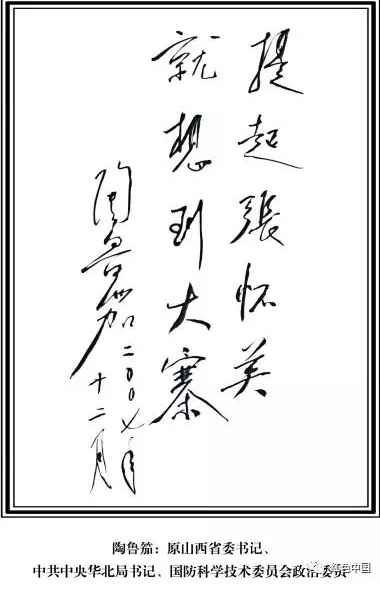 提起張怀英
就想到大寨
陶鲁笳二〇〇七年
十二月
陶鲁笳：原山西省委书记、
中共中央华北局书记、国防科学技术委员会政治委员
红色中国